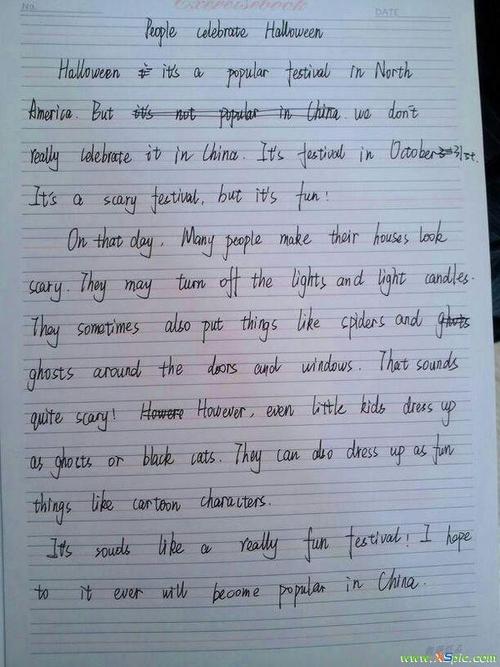 No.
Exercisebook
DATE
People celebrate Halloween
Halloween it's a popular festival in North
America. But it's not popular in China. we don't
really celebrate it in China. It's festival in October 31st.
It's a scary festival, but it's fun!
On that day, Many people make their houses look
scary. They may turn off the lights and light candles.
They sometimes also put things like spiders and ghots
ghosts around the doors and windows. That sounds
quite scary! Howere However, even little kids dress up
as ghocts or black cats. They can also dress up as fun
things like cartoon characters.
It's souds like a really fun festival! I hope
to it ever will become popular in China.
www.XSpic.com